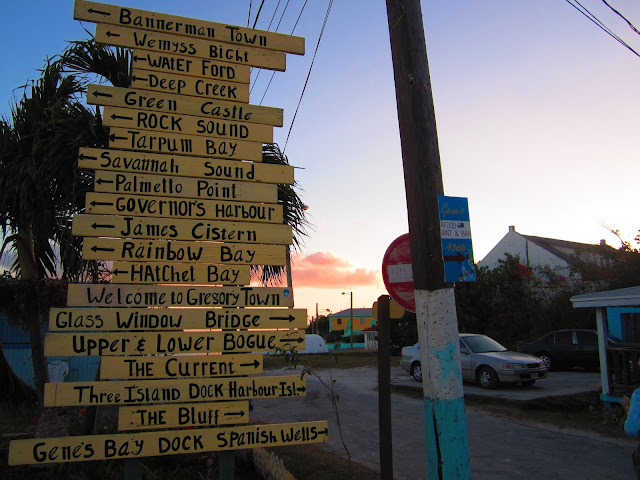 Bannerman Town
Wemyss Bight
Water Ford
Deep Creek
Green Castle
Rock Sound
Tarpum Bay
Savannah Sound
Palmetto Point
Governor's Harbour
James Cistern
Rainbow Bay
Hatchet Bay
Welcome to Gregory Town
Glass Window Bridge
Upper & Lower Bogue
The Current
Three Island Dock Harbour Is.
The Bluff
Gene's Bay Dock Spanish Wells